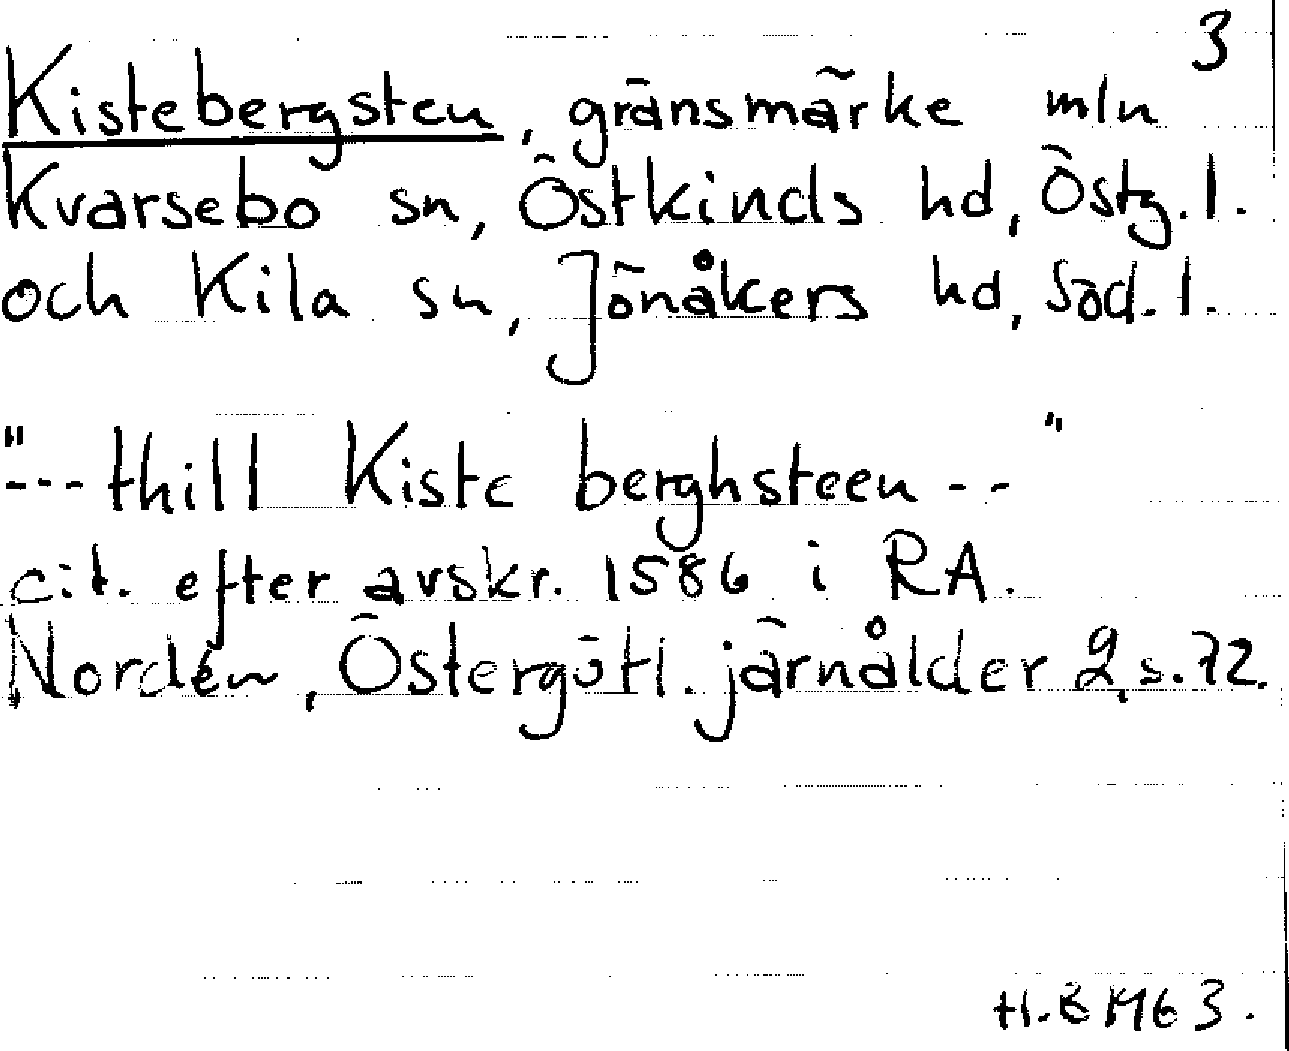 3
Kistebergsten, gränsmärke mln
Kvarsebo sn, Östkinds hd, Östg. l.
och Kila sn, Jönåkers hd, Söd. l.
"--- thill Kiste berghsteen -- "
cit. efter avskr. 1586 i RA.
Nordén, Östergötl. järnålder 2, s. 72.
H.B 1963.